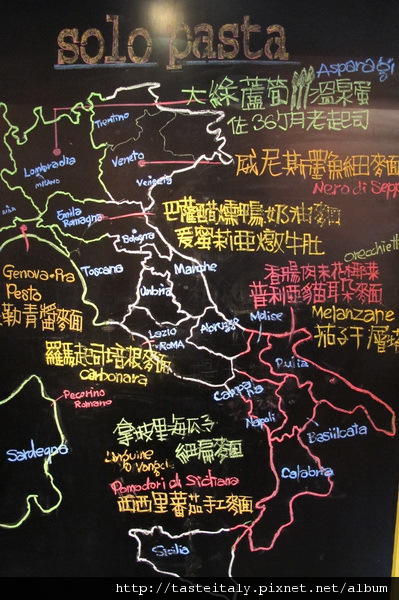 solo pasta
Asparagi
大綠蘆筍溫泉蛋
佐36個月老起司
Trentino
Lombardia
MILANO
Veneto
Venezia
威尼斯墨魚細麵
Nero di Sepp
Emilia
Romagna
Bologna
巴薩醋燻鴨奶油麵
愛蜜莉亞燉牛肚
orecchiett
Genova·Pra
Pesto
勒青醬麵
Toscana
Marche
Umbria
香腸肉末花椰菜
普利亞貓耳朵麵
Melanzane
茄子千層
Lazio
ROMA
Abruzzo
Molise
羅馬起司培根麵
carbonara
Pulia
Pecorino
Romano
Campania
Napoli
Basilicata
拿坡里海瓜子
細扁麵
Linguine
Vongole
Sardegna
Calabria
Pomodori di Siciliana
西西里蕃茄手工麵
Sicilia
http://tasteitaly.pixnet.net/album